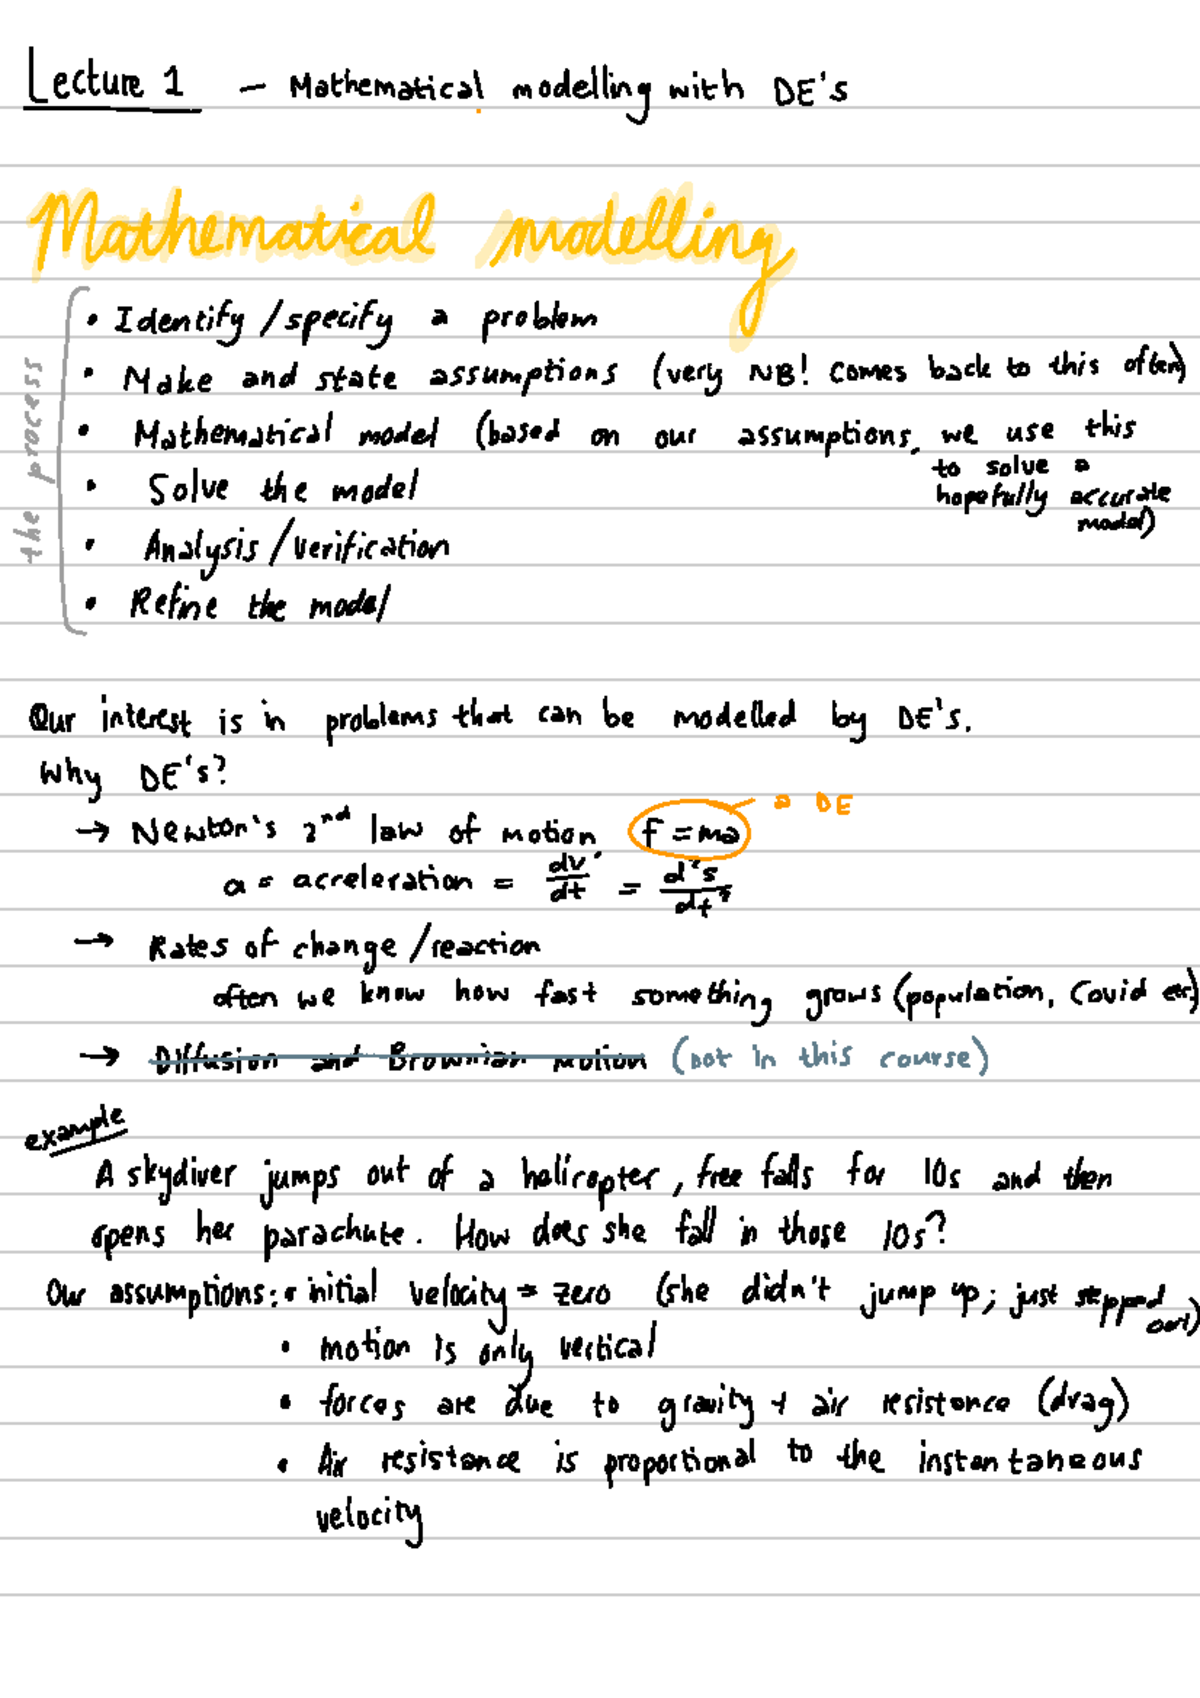 Lecture 1 – Mathematical modelling with DE's
Mathematical modelling
the process
• Identify/specify a problem
• Make and state assumptions (very NB! Comes back to this often)
• Mathematical model (based on our assumptions, we use this
to solve a
hopefully accurate
model)
• Solve the model
• Analysis/verification
• Refine the model
Our interest is in problems that can be modelled by DE's.
Why DE's?
→ Newton's 2nd law of motion F = ma a DE
a = acceleration = dv/dt = d²s/dt²
→ Rates of change/reaction
often we know how fast something grows (population, Covid etc)
→ Diffusion and Brownian motion (not in this course)
example
A skydiver jumps out of a helicopter, free falls for 10s and then
opens her parachute. How does she fall in those 10s?
Our assumptions: • initial velocity = zero (she didn't jump up; just stepped
out)
• motion is only vertical
• forces are due to gravity + air resistance (drag)
• Air resistance is proportional to the instantaneous
velocity